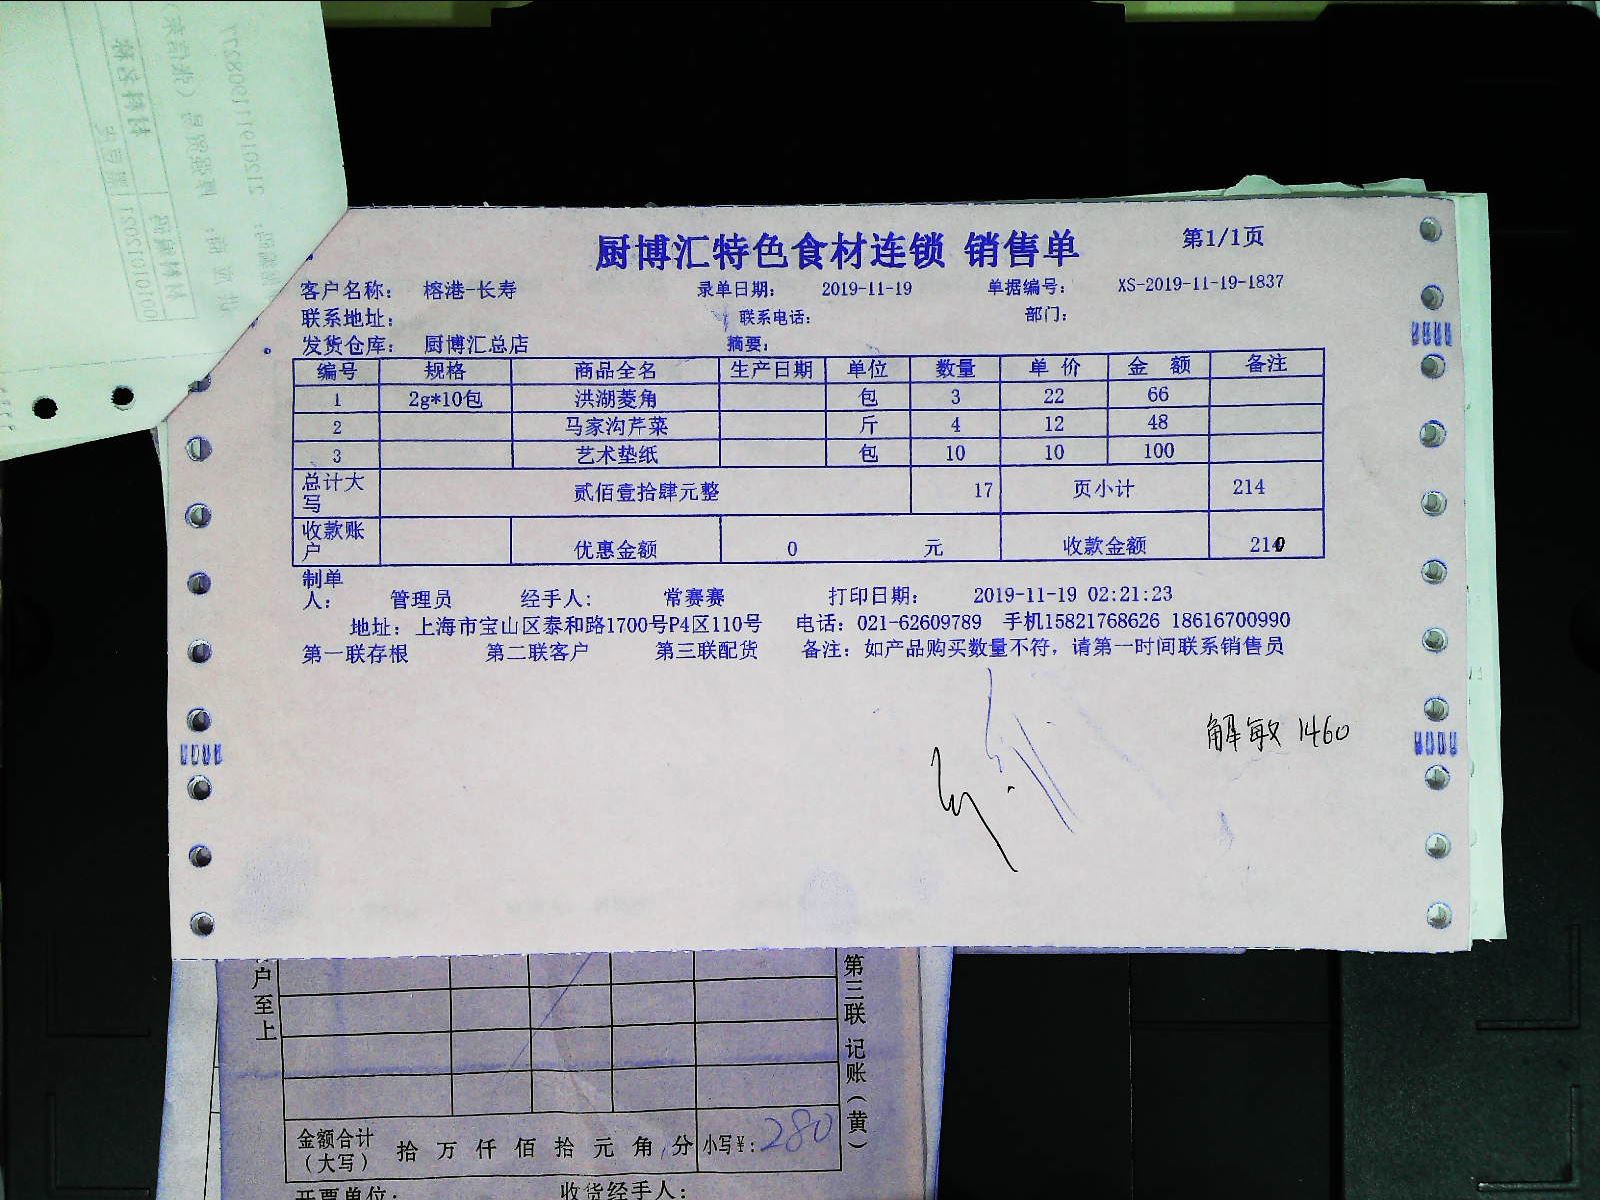 厨博汇特色食材连锁 销售单 第1/1页
客户名称： 榕港-长寿 录单日期： 2019-11-19 单据编号： XS-2019-11-19-1837
联系地址： 联系电话： 部门：
发货仓库： 厨博汇总店 摘要：
编号 规格 商品全名 生产日期 单位 数量 单 价 金 额 备注
1 2g*10包 洪湖菱角 包 3 22 66
2 马家沟芹菜 斤 4 12 48
3 艺术垫纸 包 10 10 100
总计大写 贰佰壹拾肆元整 17 页小计 214
收款账户 优惠金额 0 元 收款金额 210
制单人： 管理员 经手人： 常赛赛 打印日期： 2019-11-19 02:21:23
地址：上海市宝山区泰和路1700号P4区110号 电话：021-62609789 手机15821768626 18616700990
第一联存根 第二联客户 第三联配货 备注：如产品购买数量不符，请第一时间联系销售员
解敏 1460
户至上
第三联 记账（黄）
金额合计（大写） 拾 万 仟 佰 拾 元 角 分 小写¥: 280
开票单位： 收货经手人：